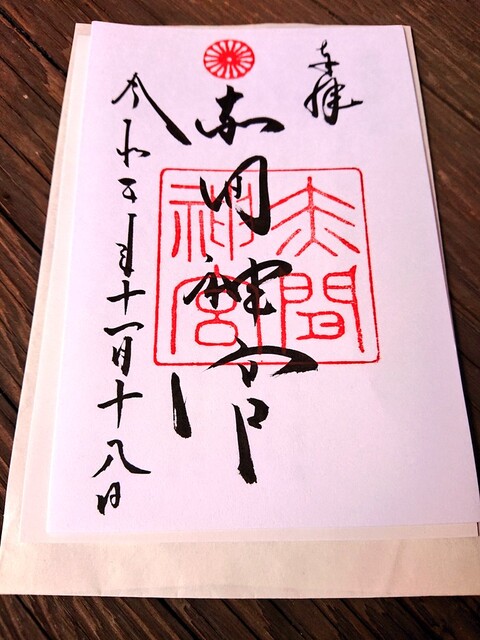 奉拝
赤間神宮
赤間神宮
令和五年十一月十八日